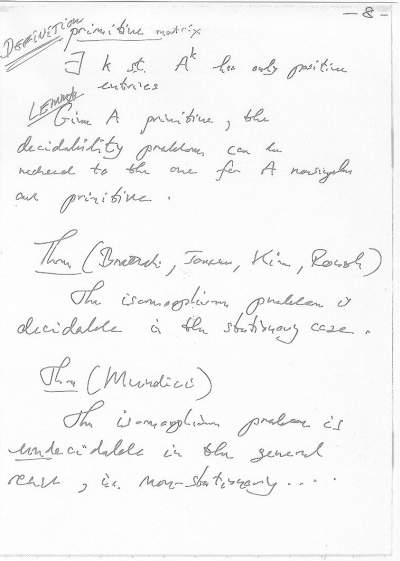 - 8 -
DEFINITION primitive matrix
∃ k st. A^k has only positive
entries
LEMMA
Given A primitive, the
decidability problem can be
reduced to the one for A nonsingular
and primitive.
Thm (Bratteli, Jorgensen, Kim, Roush)
The isomorphism problem is
decidable in the stationary case.
Thm (Mundici)
The isomorphism problem is
undecidable in the general
, i.e. non-stationary ....